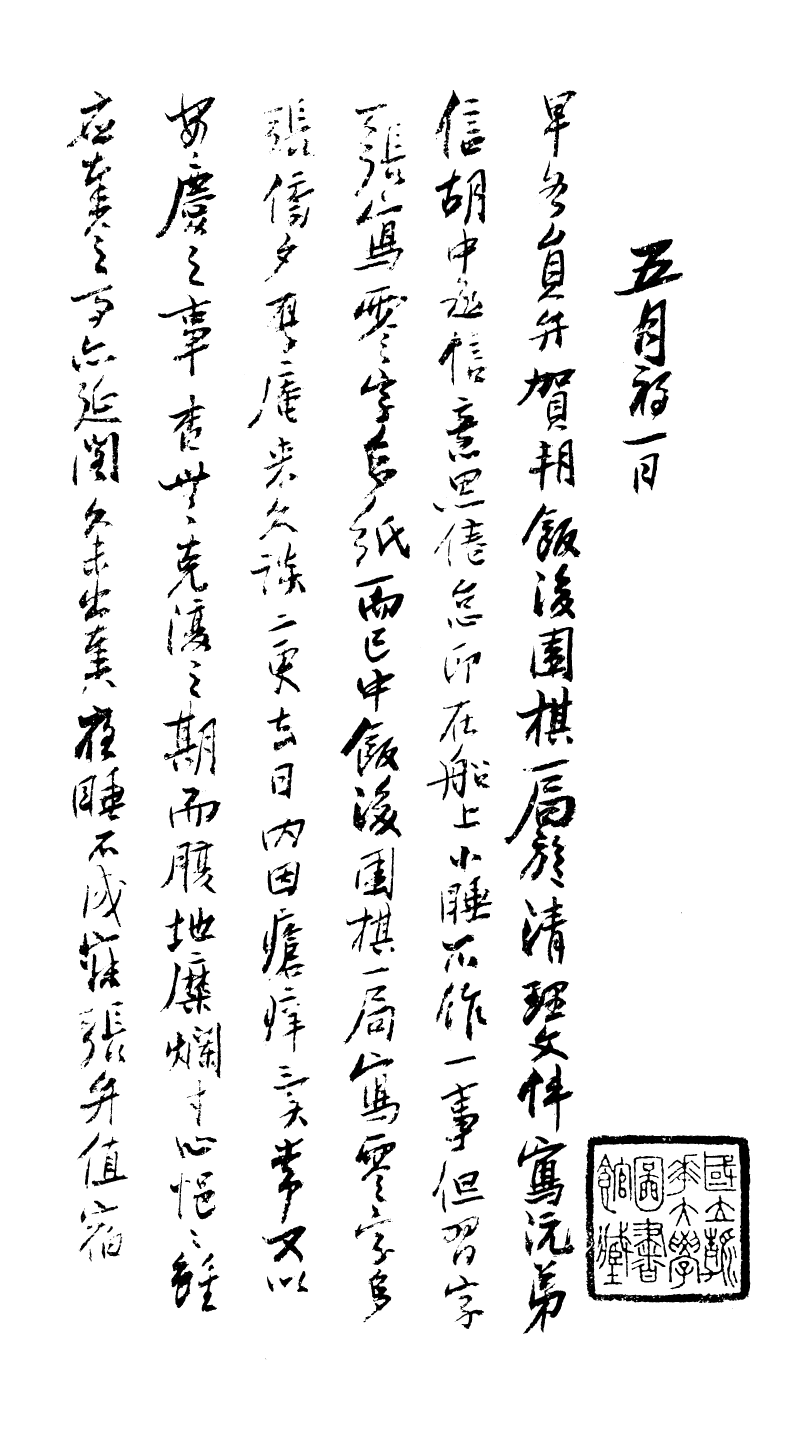 五月初一日
早各員弁賀朔飯後圍棋一局旋清理文件寫沅弟
信胡中丞信意思倦怠即在船上小睡不作一事但習字
一張寫零字多紙而已中飯後圍棋一局寫零字多
張傍夕摩庵來久談二更去日內因瘡癢異常又以
安慶之事杳無克復之期而腹地糜爛寸心悒悒雖
應奏之事亦延閣久未出奏夜睡不成寐張弁值宿
國立
大學
圖書
館藏